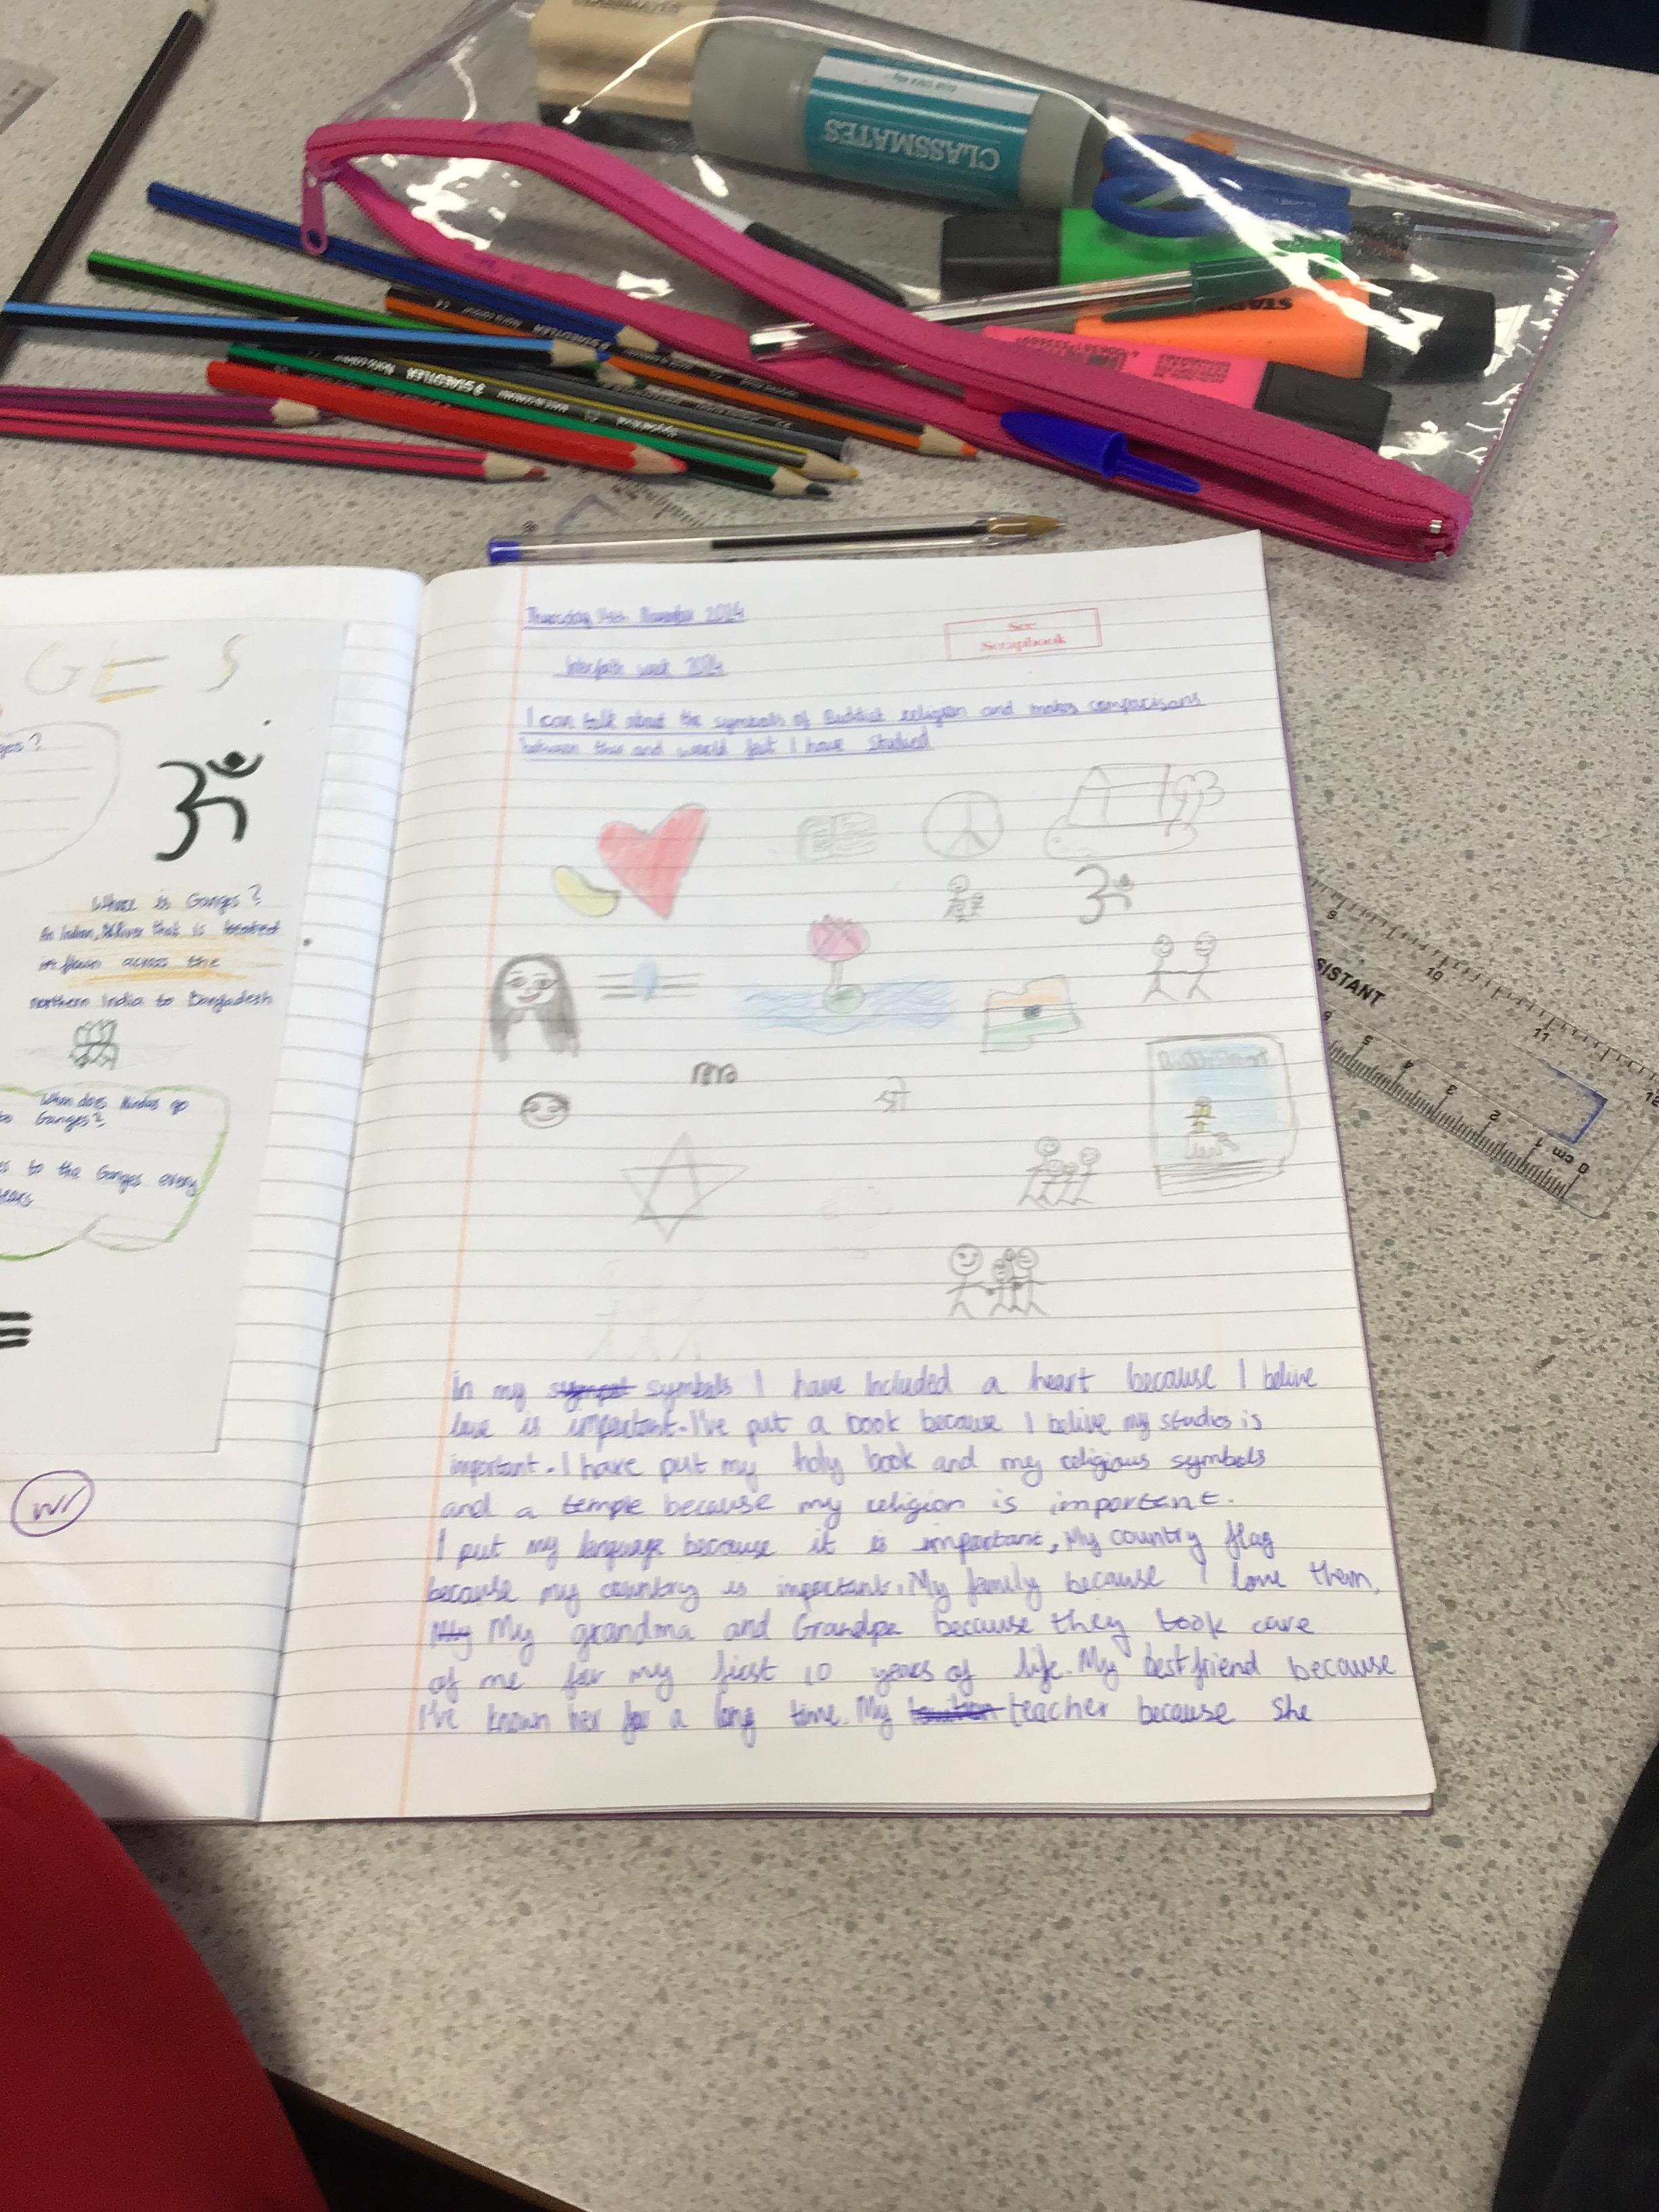 CLASSMATES
STAEDTLER
GES
ges?
ॐ
Where is Ganges?
An Indian, River that is located
in flows across the
northern India to Bangladesh
When does Hindus go
to Ganges?
to the Ganges every
years
Thursday 14th November 2024
See
Scrapbook
Interfaith week 2024
I can talk about the symbols of Buddist religion and makes comparisons
between this and world fait I have studied
ॐ
श्री
In my symbols I have Included a heart because I belive
love is important. I've put a book because I belive my studies is
important. I have put my holy book and my religious symbols
and a temple because my religion is important.
I put my language because it is important, My country flag
because my country is important. My family because I love them,
My My grandma and Grandpa because they took care
of me for my first 10 years of life. My best friend because
I've known her for a long time. My tuition teacher because She
8
10
11
12
SISTANT
6 5 4 3 2 1 0 cm